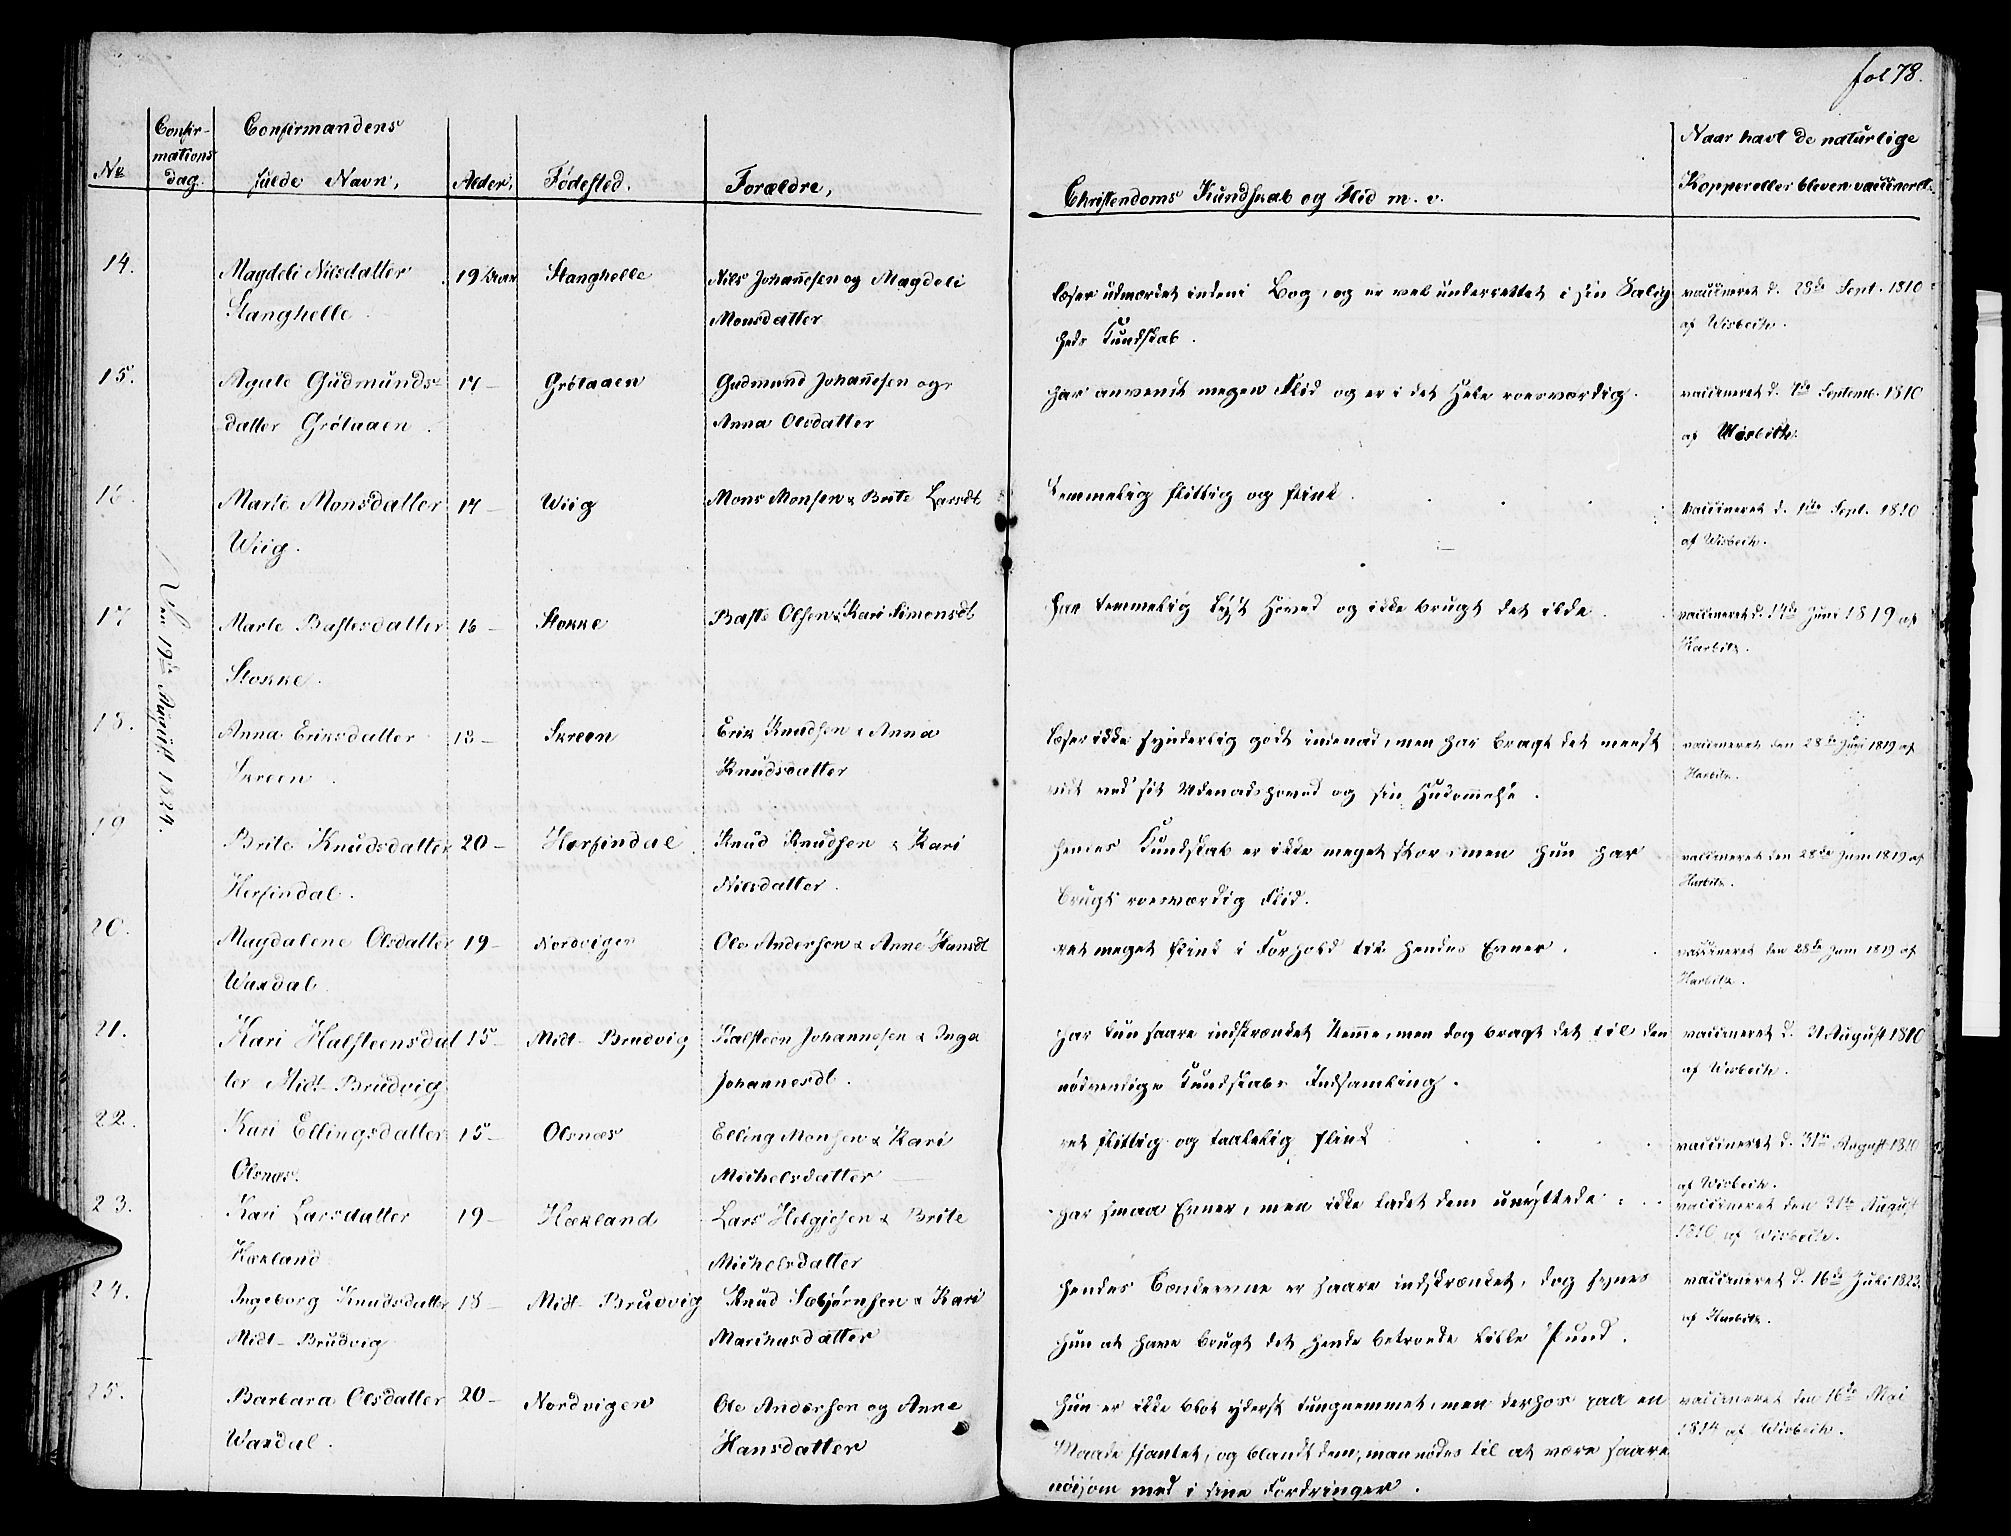 fol 78.
Confir-
mations
dag.
Confirmandens
fulde Navn,
No
Alder,
Fødested,
Forældre,
Christendoms Kundskab og Flid m. v.
Naar havt de naturlige
Kopper eller bleven vaccineret.
Den 19de August 1824.
14.
Magdeli Nilsdatter
Stanghelle.
19 Aar
Stanghelle
Nils Johannesen og Magdeli
Monsdatter
læser udmærket indeni Bog, og er vel underrettet i sin Salig-
heds Kundskab.
vaccineret d. 28de Sept. 1810
af Wisbech.
15.
Agate Gudmunds-
datter Grötaaen.
17 -
Grötaaen
Gudmund Johannesen og
Anna Olsdatter
har anvendt megen Flid og er i det Hele roesværdig.
vaccineret d. 7de Septemb. 1810
af Wisbech.
16.
Marte Monsdatter
Wiig.
17 -
Wiig
Mons Monsen & Brite Larsdt
temmelig flittig og flink.
vaccineret d. 1ste Sept. 1810
af Wisbech.
17
Marte Bastesdatter
Stokke.
16 -
Stokke
Baste Olsen & Kari Simonsdt
har temmelig lyst Hoved og ikke brugt det ilde.
vaccineret d. 14de Juni 1819 af
Harbitz.
18.
Anna Eriksdatter
Skreen.
18 -
Skreen
Erik Knudsen & Anna
Knudsdatter
læser ikke synderlig godt indenad, men har bragt det meest
vidt ved sit Udenadshoved og sin Hukommelse.
vaccineret den 28de Juni 1819 af
Harbitz.
19
Brite Knudsdatter
Herfindal.
20 -
Herfindal
Knud Knudsen & Kari
Nilsdatter.
hendes Kundskab er ikke meget stor, men hun har
brugt roesværdig Flid.
vaccineret den 28de Juni 1819 af
Harbitz.
20.
Magdalene Olsdatter
Waxdal.
19 -
Nordvigen
Ole Andersen & Anne Hansdt
ret meget flink i Forhold til hendes Evner.
vaccineret den 28de Juni 1819 af
Harbitz.
21.
Kari Halsteensdat
ter Midt-Brudvig
15 -
Midt-Brudvig
Halsteen Johannesen & Inga
Johannesdt.
har kun saare indskrænket Nemme, men dog bragt det til den
nødvendige Kundskabs Indsamling.
vaccineret d. 31 August 1810
af Wisbech.
22.
Kari Ellingsdatter
Olsnæs.
15 -
Olsnæs
Elling Monsen & Kari
Michelsdatter
ret flittig og taalelig flink
vaccineret d. 31te August 1810
af Wisbech.
23.
Kari Larsdatter
Hækland
19 -
Hækland
Lars Helgjesen & Brite
Michelsdatter
har smaa Evner, men ikke ladet dem unyttede.
vaccineret den 31te August
1810 af Wisbech.
24.
Ingeborg Knudsdatter
Midt-Brudvig
18 -
Midt-Brudvig
Knud Sæbjørnsen & Kari
Marihusdatter
hendes Sandeevne er saare indskrænket, dog synes
hun at have brugt det hende betroede lille Pund.
vaccineret d. 16de Juli 1823.
af Harbitz.
25.
Barbara Olsdatter
Waxdal.
20 -
Nordvigen
Ole Andersen og Anne
Hansdatter
hun er ikke blot yderst tungnemmet, men derhos paa en
Maade fjantet, og blandt dem, man nødes til at være saare
nøisom med i sine Fordringer.
vaccineret den 16de Mai
1814 af Wisbech.